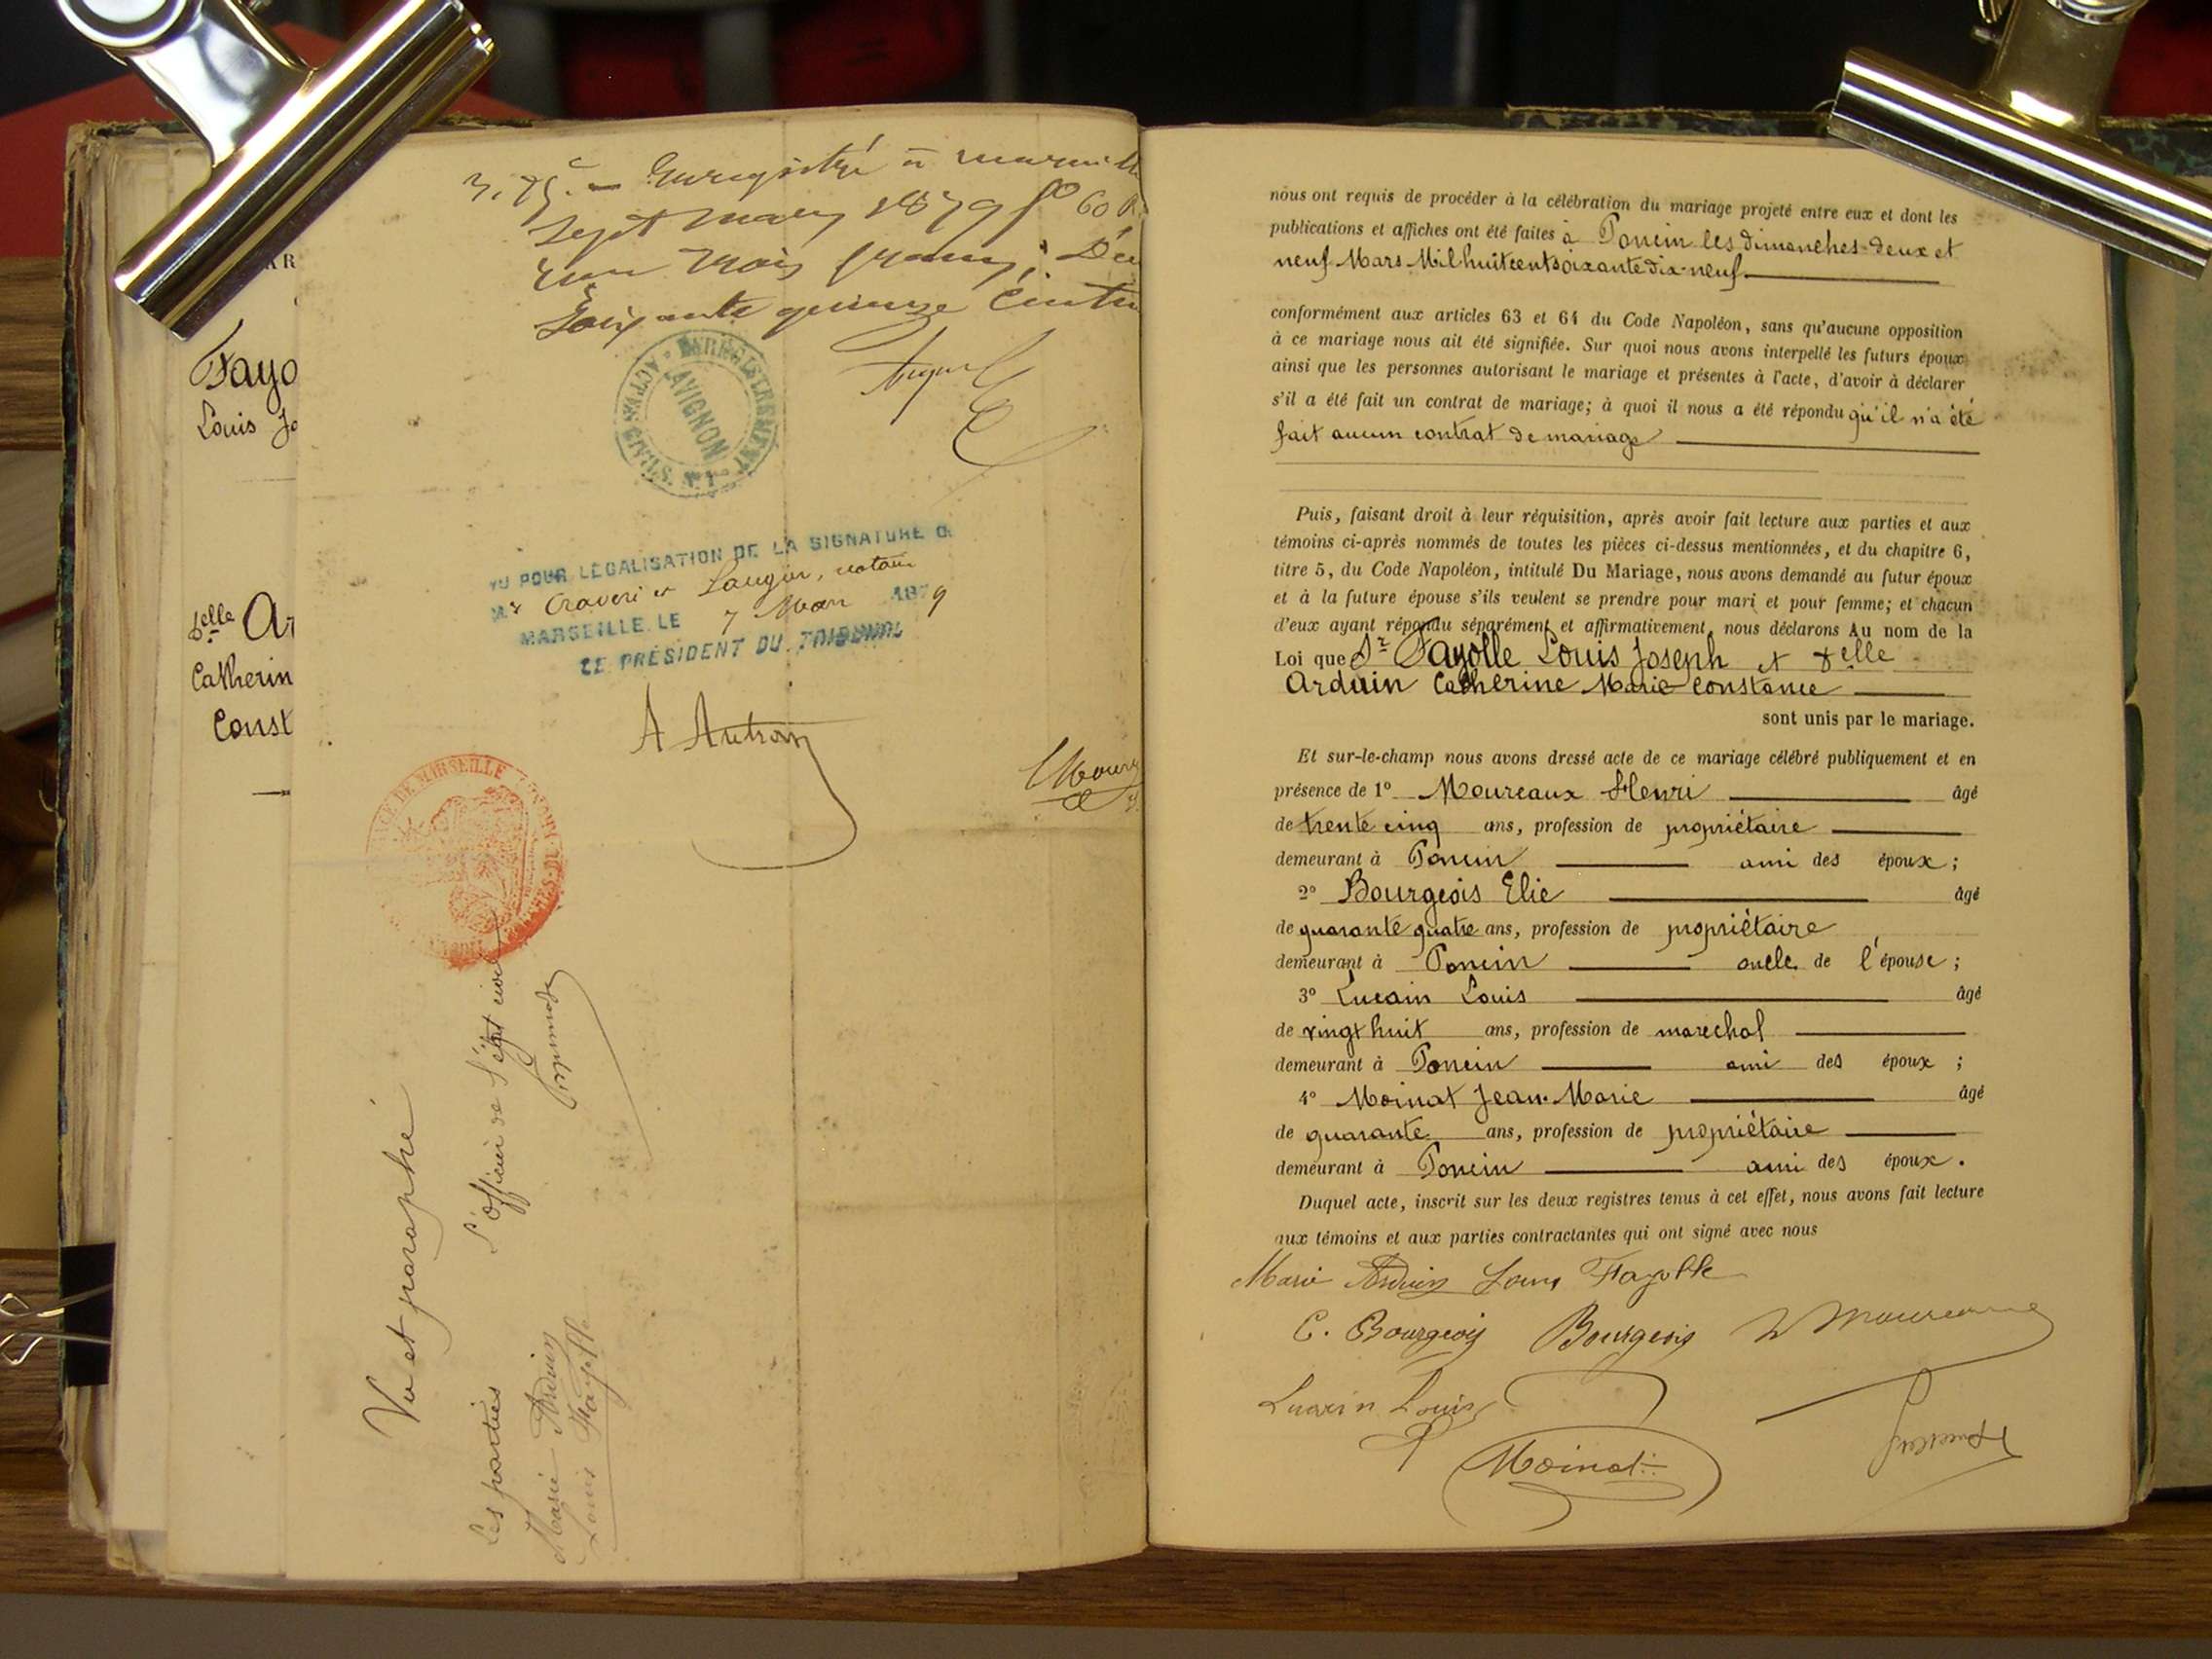 AR
Fayo
Louis Jo
Delle Ar
Catherin
Const
3,75c. — Enregistré à
sept mars 1879 f° 60
trois francs; Déc
Soixante quinze Centi
ENREGISTREMENT
AVIGNON
ACTES CIVILS. N° 1
VU POUR LÉGALISATION DE LA SIGNATURE D
Mrs Craveri et Laugier, notaire
MARSEILLE, LE 7 Mars 1879
LE PRÉSIDENT DU TRIBUNAL
A Autran
Vu et paraphé
L'officier de l'état civil
Les parties
Marie Arduin
Louis Fayolle
nous ont requis de procéder à la célébration du mariage projeté entre eux et dont les
publications et affiches ont été faites à Poncin les dimanches deux et
neuf Mars Mil huit cent soixante dix-neuf
conformément aux articles 63 et 64 du Code Napoléon, sans qu'aucune opposition
à ce mariage nous ait été signifiée. Sur quoi nous avons interpellé les futurs époux
ainsi que les personnes autorisant le mariage et présentes à l'acte, d'avoir à déclarer
s'il a été fait un contrat de mariage; à quoi il nous a été répondu qu'il n'a été
fait aucun contrat de mariage
Puis, faisant droit à leur réquisition, après avoir fait lecture aux parties et aux
témoins ci-après nommés de toutes les pièces ci-dessus mentionnées, et du chapitre 6,
titre 5, du Code Napoléon, intitulé Du Mariage, nous avons demandé au futur époux
et à la future épouse s'ils veulent se prendre pour mari et pour femme; et chacun
d'eux ayant répondu séparément et affirmativement, nous déclarons Au nom de la
Loi que Sr Fayolle Louis Joseph et Delle
Arduin Catherine Marie Constance
sont unis par le mariage.
Et sur-le-champ nous avons dressé acte de ce mariage célébré publiquement et en
présence de 1° Moureaux Henri âgé
de trente cinq ans, profession de propriétaire
demeurant à Poncin ami des époux;
2° Bourgeois Elie âgé
de quarante quatre ans, profession de propriétaire
demeurant à Poncin oncle de l'épouse;
3° Lucain Louis âgé
de vingt huit ans, profession de maréchal
demeurant à Poncin ami des époux;
4° Moinat Jean-Marie âgé
de quarante ans, profession de propriétaire
demeurant à Poncin ami des époux.
Duquel acte, inscrit sur les deux registres tenus à cet effet, nous avons fait lecture
aux témoins et aux parties contractantes qui ont signé avec nous
Marie Arduin Louis Fayolle
C. Bourgeois Bourgeois H Moureaux
Lucain Louis
Moinat